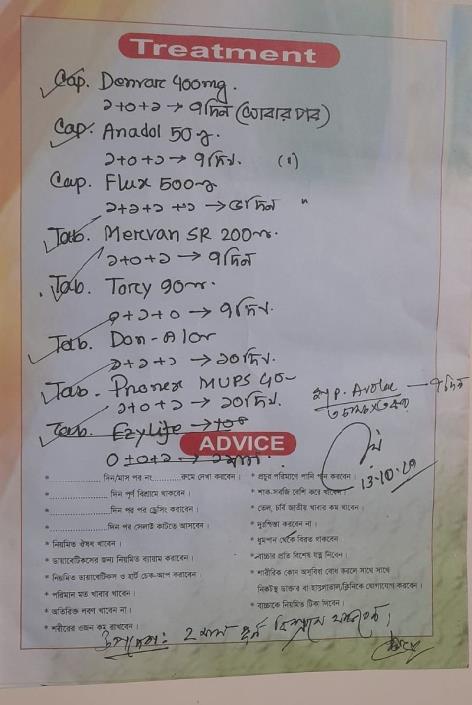 Treatment
Cap. Demvac 400mg.
২+০+২ → ৭দিন (খাবার পর)
Cap. Anadol 50
২+০+২ → ৭দিন. (॥)
Cap. Flux 500
২+২+২+২ → ৫দিন "
Tab. Mervan SR 200
২+০+২ → ৭দিন
Tab. Tory 90
০+২+০ → ৭দিন.
Tab. Don-A
২+২+২ → ২০দিন.
Tab. MUPS 40
২+০+২ → ২০দিন.
Syp. Avolac — ৭দিন
Tab. Ezylife →
ADVICE
০+০+২ →
* .................. দিন/মাস পর নং.......... রুমে দেখা করাবেন।
* .................. দিন পূর্ণ বিশ্রামে থাকবেন।
* .................. দিন পর পর ড্রেসিং করাবেন।
* .................. দিন পর সেলাই কাটতে আসবেন।
* নিয়মিত ঔষধ খাবেন।
* ডায়াবেটিকসের জন্য নিয়মিত ব্যায়াম করাবেন।
* নিয়মিত ডায়াবেটিকস ও হার্ট চেক-আপ করাবেন।
* পরিমান মত খাবার খাবেন।
* অতিরিক্ত লবণ খাবেন না।
* শরীরের ওজন কম রাখবেন।
* প্রচুর পরিমাণে পানি পান করবেন।
* শাক-সবজি বেশি করে খাবেন।
* তেল, চর্বি জাতীয় খাবার কম খাবেন।
* দুঃশ্চিন্তা করবেন না।
* ধূমপান থেকে বিরত থাকবেন
* বাচ্চার প্রতি বিশেষ যত্ন নিবেন।
* শারীরিক কোন অসুবিধা বোধ করলে সাথে সাথে
নিকটস্থ ডাক্তার বা হাসপাতাল/ক্লিনিকে যোগাযোগ করবেন।
* বাচ্চাকে নিয়মিত টিকা দিবেন।
২ মাস পূর্ণ বিশ্রামে থাকবেন।